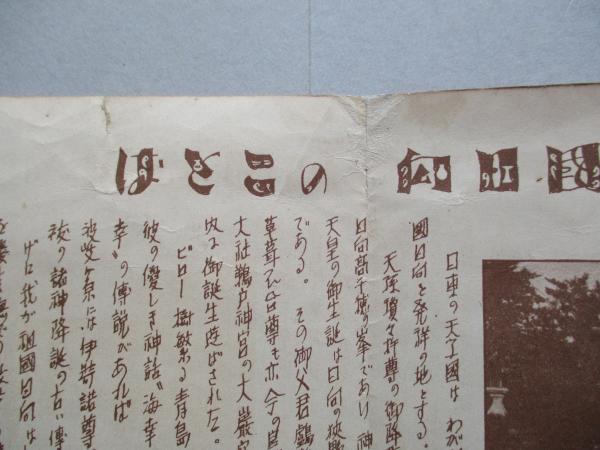 國向日 の ことば
日東の天子國は わが
國日向を発祥の地とする。
天孫瓊々杵尊の御降臨
日向高千穂の峯であり 神
天皇の御生誕は日向の狭野
である。その御父君鸕鶿
草葺不合尊も亦今の官
大社鵜戸神宮の大巌窟
内に御誕生遊ばされた。
ビロー樹繁る青島
彼の優しき神話“海幸
幸”の傳説があれば
波岐ヶ原には伊弉諾尊
後の諸神降誕の古い傳
げに我が祖國日向は